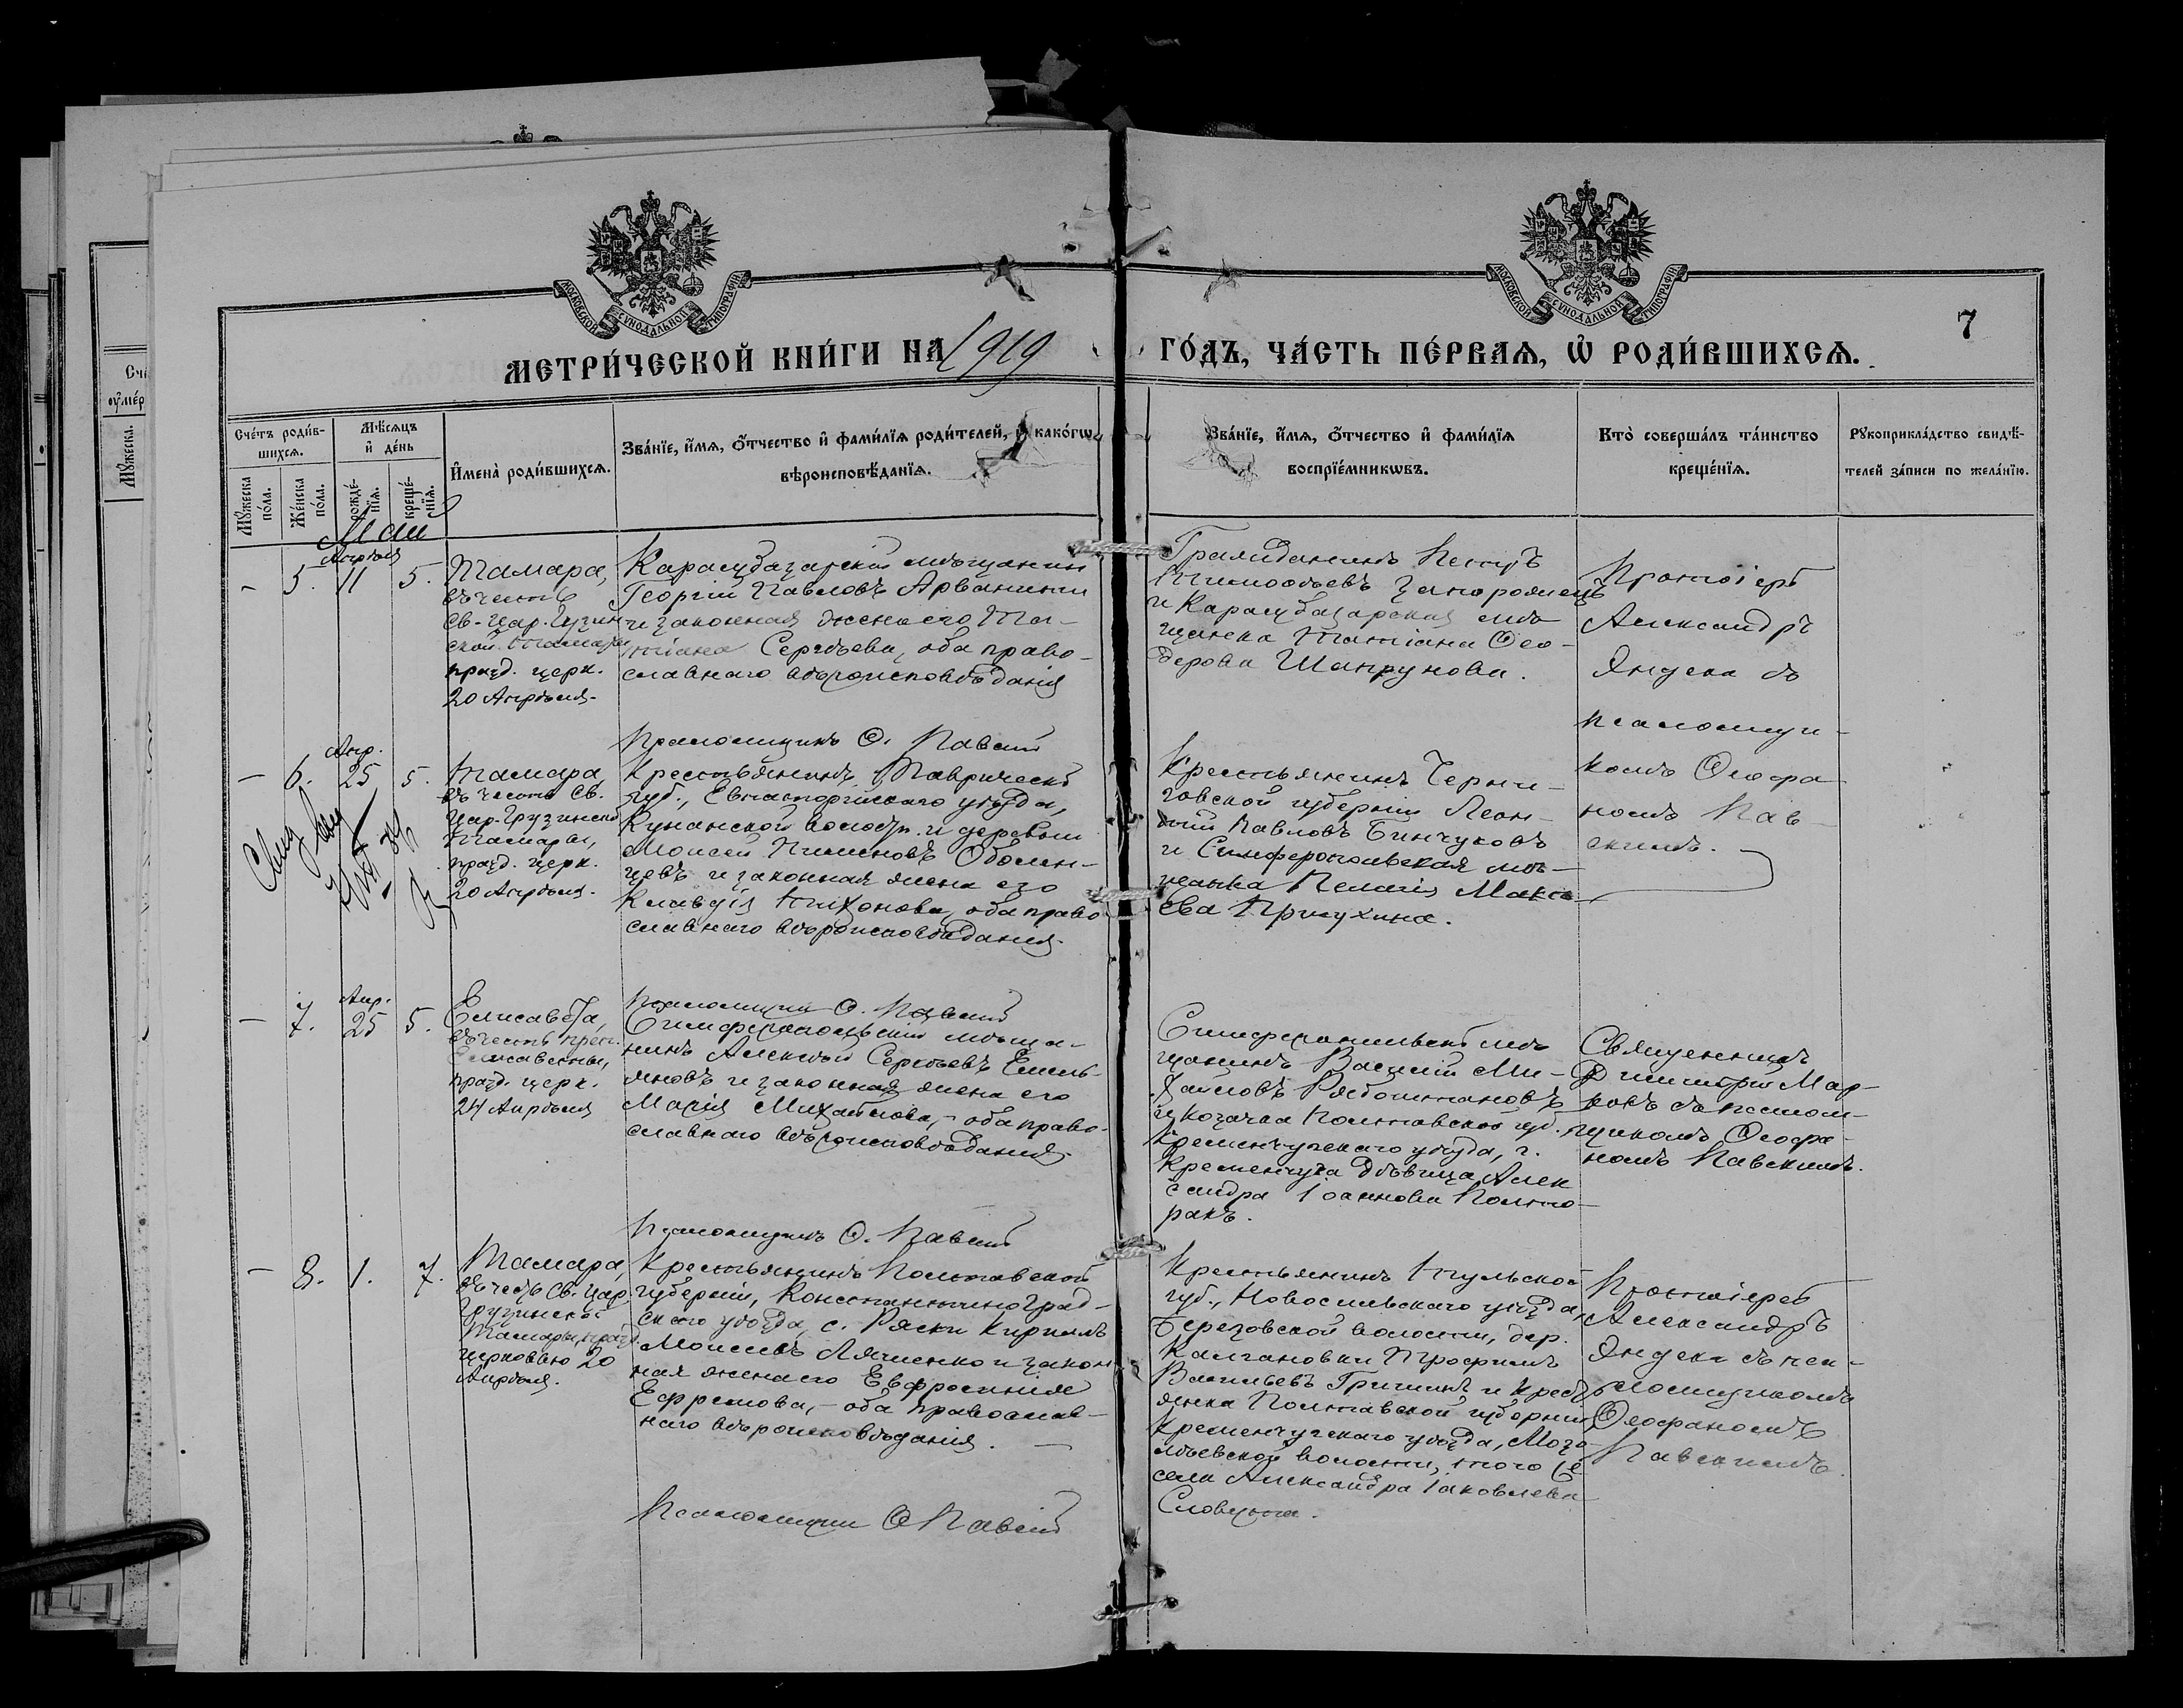 МОСКОВСКОЙ СУНОДАЛЬНОЙ ТИПОГРАФІИ
МОСКОВСКОЙ СУНОДАЛЬНОЙ ТИПОГРАФІИ
7
МЕТРИ́ЧЕСКОЙ КНИ́ГИ НА 1919 ГО́ДЪ, ЧА́СТЬ ПЕ́РВАЯ, Ѿ РОДИ́ВШИХСЯ.
Сче́тъ роди́в-
шихся.
Мѣ́сяцъ
и҆ де́нь
Мꙋ́жеска
по́ла.
Же́нска
по́ла.
рожде́-
нїя.
креще́-
нїя.
И҆мена̀ роди́вшихся.
Зва́нїе, и҆́мя, ѻ҆́тчество и҆ фами́лїя роди́телей, и҆ како́гѡ
вѣроисповѣ́данїя.
Зва́нїе, и҆́мя, ѻ҆́тчество и҆ фами́лїя
воспрїе́мникѡвъ.
Кто̀ соверша́лъ та́инство
креще́нїя.
Рꙋкоприкла́дство свидѣ́-
телей за́писи по жела́нїю.
Май
Апрѣля
- 5. 11 5.
Тамара,
въ честь
св. цар. Грузин
ской Тамары
празд. церк.
20 Апрѣля.
Карасубазарскій мѣщанинъ
Георгій Павловъ Арванити
и законная жена его Та-
тіана Сергѣева, оба право-
славнаго вѣроисповѣданія
Псаломщикъ Ѳ. Павскій
Гражданинъ Петръ
Тимоѳеевъ Запорожецъ
и Карасубазарская мѣ
щанка Татіана Ѳео-
дорова Шапрунова.
Протоіерей
Александръ
Яндека съ
псаломщи-
комъ Ѳеофа
номъ Пав-
скимъ.
Апр.
- 6. 25 5.
Тамара,
въ честь Св.
Цар. Грузинской
Тамары,
празд. церк.
20 Апрѣля.
Крестьянинъ Таврическ
губ., Евпаторійскаго уѣзда,
Кунанской волости и деревни
Моисей Пименовъ Оболен-
цевъ и законная жена его
Клавдія Тихонова, оба право
славнаго вѣроисповѣданія.
Псаломщикъ Ѳ. Павскій
Крестьянинъ Черни-
говской губерніи Леон-
тій Павловъ Бинчуковъ
и Симферопольская мѣ-
щанка Пелагія Макси
ева Присухина.
Апр.
- 7. 25 5.
Елисавета,
въ честь преп.
Елисаветы,
празд. церк.
24 Апрѣля
Симферопольскій мѣща-
нинъ Алексѣй Сергѣевъ Емель-
яновъ и законная жена его
Марія Михайлова, - оба право-
славнаго вѣроисповѣданія.
Псаломщикъ Ѳ. Павскій
Симферопольскій мѣ
щанинъ Василій Ми-
хайловъ Рябоштановъ
и козачка Полтавской губ.
Кременчугскаго уѣзда, г.
Кременчуга дѣвица Алек
сандра Іоаннова Полто-
ракъ.
Священникъ
Димитрій Мар-
ковъ съ псалом-
щикомъ Ѳеофа-
номъ Павскимъ.
- 8. 1. 7.
Тамара,
въ честь Св. Цар.
Грузинской
Тамары, празд.
церковью 20
Апрѣля.
Крестьянинъ Полтавской
губерніи, Константиноград-
скаго уѣзда, с. Ряски Кириллъ
Моисеевъ Ляшенко и закон
ная жена его Евфросинія
Ефремова, - оба православ-
наго вѣроисповѣданія. -
Псаломщикъ Ѳ Павскій
Крестьянинъ Тульской
губ., Новосильскаго уѣзда,
Березовской волости, дер.
Калгановки Трофимъ
Васильевъ Гришинъ и крест
янка Полтавской губерніи
Кременчугскаго уѣзда, Моза
лѣевской волости, того же
села Александра Іаковлева
Словецта.
Протоіерей
Александръ
Яндека съ пса-
ломщикомъ
Ѳеофаномъ
Павскимъ.